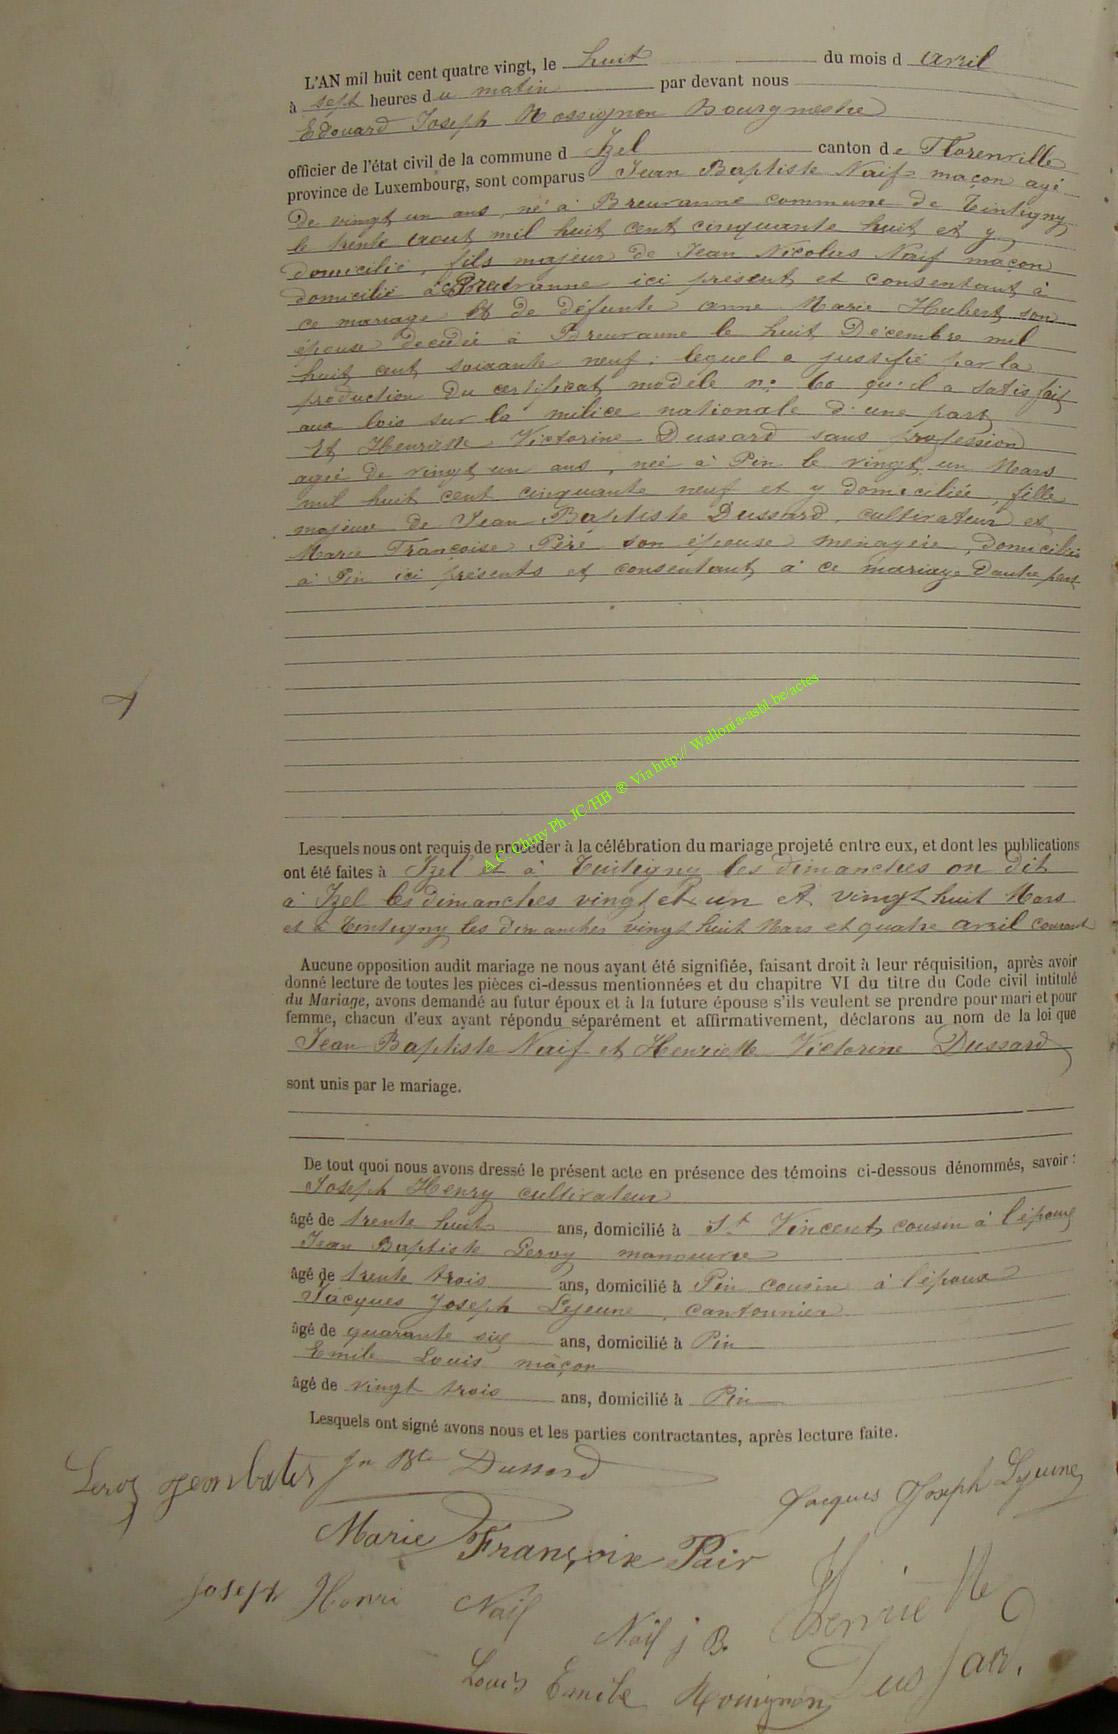 L'AN mil huit cent quatre vingt, le huit du mois d avril
à sept heures du matin par devant nous
Edouard Joseph Rossignon Bourgmestre
officier de l'état civil de la commune d Izel canton de Florenville
province de Luxembourg, sont comparus Jean Baptiste Naif maçon agé
de vingt un ans, né à Breuvanne commune de Tintigny
le trente aout mil huit cent cinquante huit et y
domicilié, fils majeur de Jean Nicolas Naif macon
domicilié à Breuvanne ici présent et consentant à
ce mariage et de défunte anne Marie Hubert son
épouse décédée à Breuvanne le huit Décembre mil
huit cent soixante neuf; lequel a justifié par la
production du certificat modèle n° 60 qu'il a satisfait
aux lois sur la milice nationale d'une part
Et Henriette Victorine Dussard sans profession
agée de vingt un ans, née à Pin le vingt un Mars
mil huit cent cinquante neuf et y domiciliée, fille
majeure de Jean Baptiste Dussard, cultivateur et
Marie Françoise Péré son épouse ménagère, domiciliés
à Pin ici présents et consentant à ce mariage d'autre part
A.C. Chiny Ph. JC/HB ® Via http:// Wallonia-asbl.be/actes
Lesquels nous ont requis de procéder à la célébration du mariage projeté entre eux, et dont les publications
ont été faites à Izel et à Tintigny les dimanches on dit
à Izel les dimanches vingt et un et vingt huit Mars
et à Tintigny les dimanches vingt huit Mars et quatre avril courant
Aucune opposition audit mariage ne nous ayant été signifiée, faisant droit à leur réquisition, après avoir
donné lecture de toutes les pièces ci-dessus mentionnées et du chapitre VI du titre du Code civil intitulé
du Mariage, avons demandé au futur époux et à la future épouse s'ils veulent se prendre pour mari et pour
femme, chacun d'eux ayant répondu séparément et affirmativement, déclarons au nom de la loi que
Jean Baptiste Naif et Henriette Victorine Dussard
sont unis par le mariage.
De tout quoi nous avons dressé le présent acte en présence des témoins ci-dessous dénommés, savoir :
Joseph Henry cultivateur
âgé de trente huit ans, domicilié à St Vincent cousin à l'épouse
Jean Baptiste Leroy manoeuvre
âgé de trente trois ans, domicilié à Pin cousin à l'époux
Jacques Joseph Lejeune, cantonnier
âgé de quarante six ans, domicilié à Pin
Emile Louis maçon
âgé de vingt trois ans, domicilié à Pin
Lesquels ont signé avons nous et les parties contractantes, après lecture faite.
Leroy jeanbatis Jn Bte Dussard
Jacques Joseph Lejeune
Marie Françoise Pair
Joseph Henri Naif Naif j B. Henriette
Dussard.
Louis Emile Rossignon